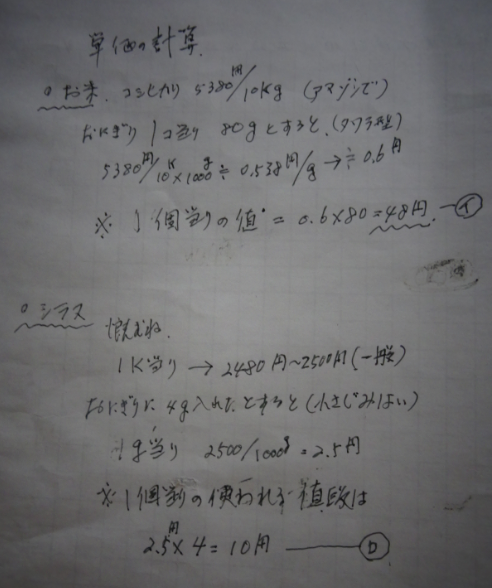 単価の計算
○お米. コシヒカリ 5380円/10kg (アマゾンで)
おにぎり 1コ当り 80gとすると. (タワラ型)
5380円/10K×1000g ≒ 0.538円/g → ≒ 0.6円
※ 1個当りの値 = 0.6×80 = 48円 ―イ
○シラス
1K当り → 2480円〜2500円(一般)
おにぎりに 4g入れたとすると(小さじ1ぱい)
1g当り 2500/1000g = 2.5円
※1個当りの使われる値段は
2.5円×4 = 10円 ―ロ